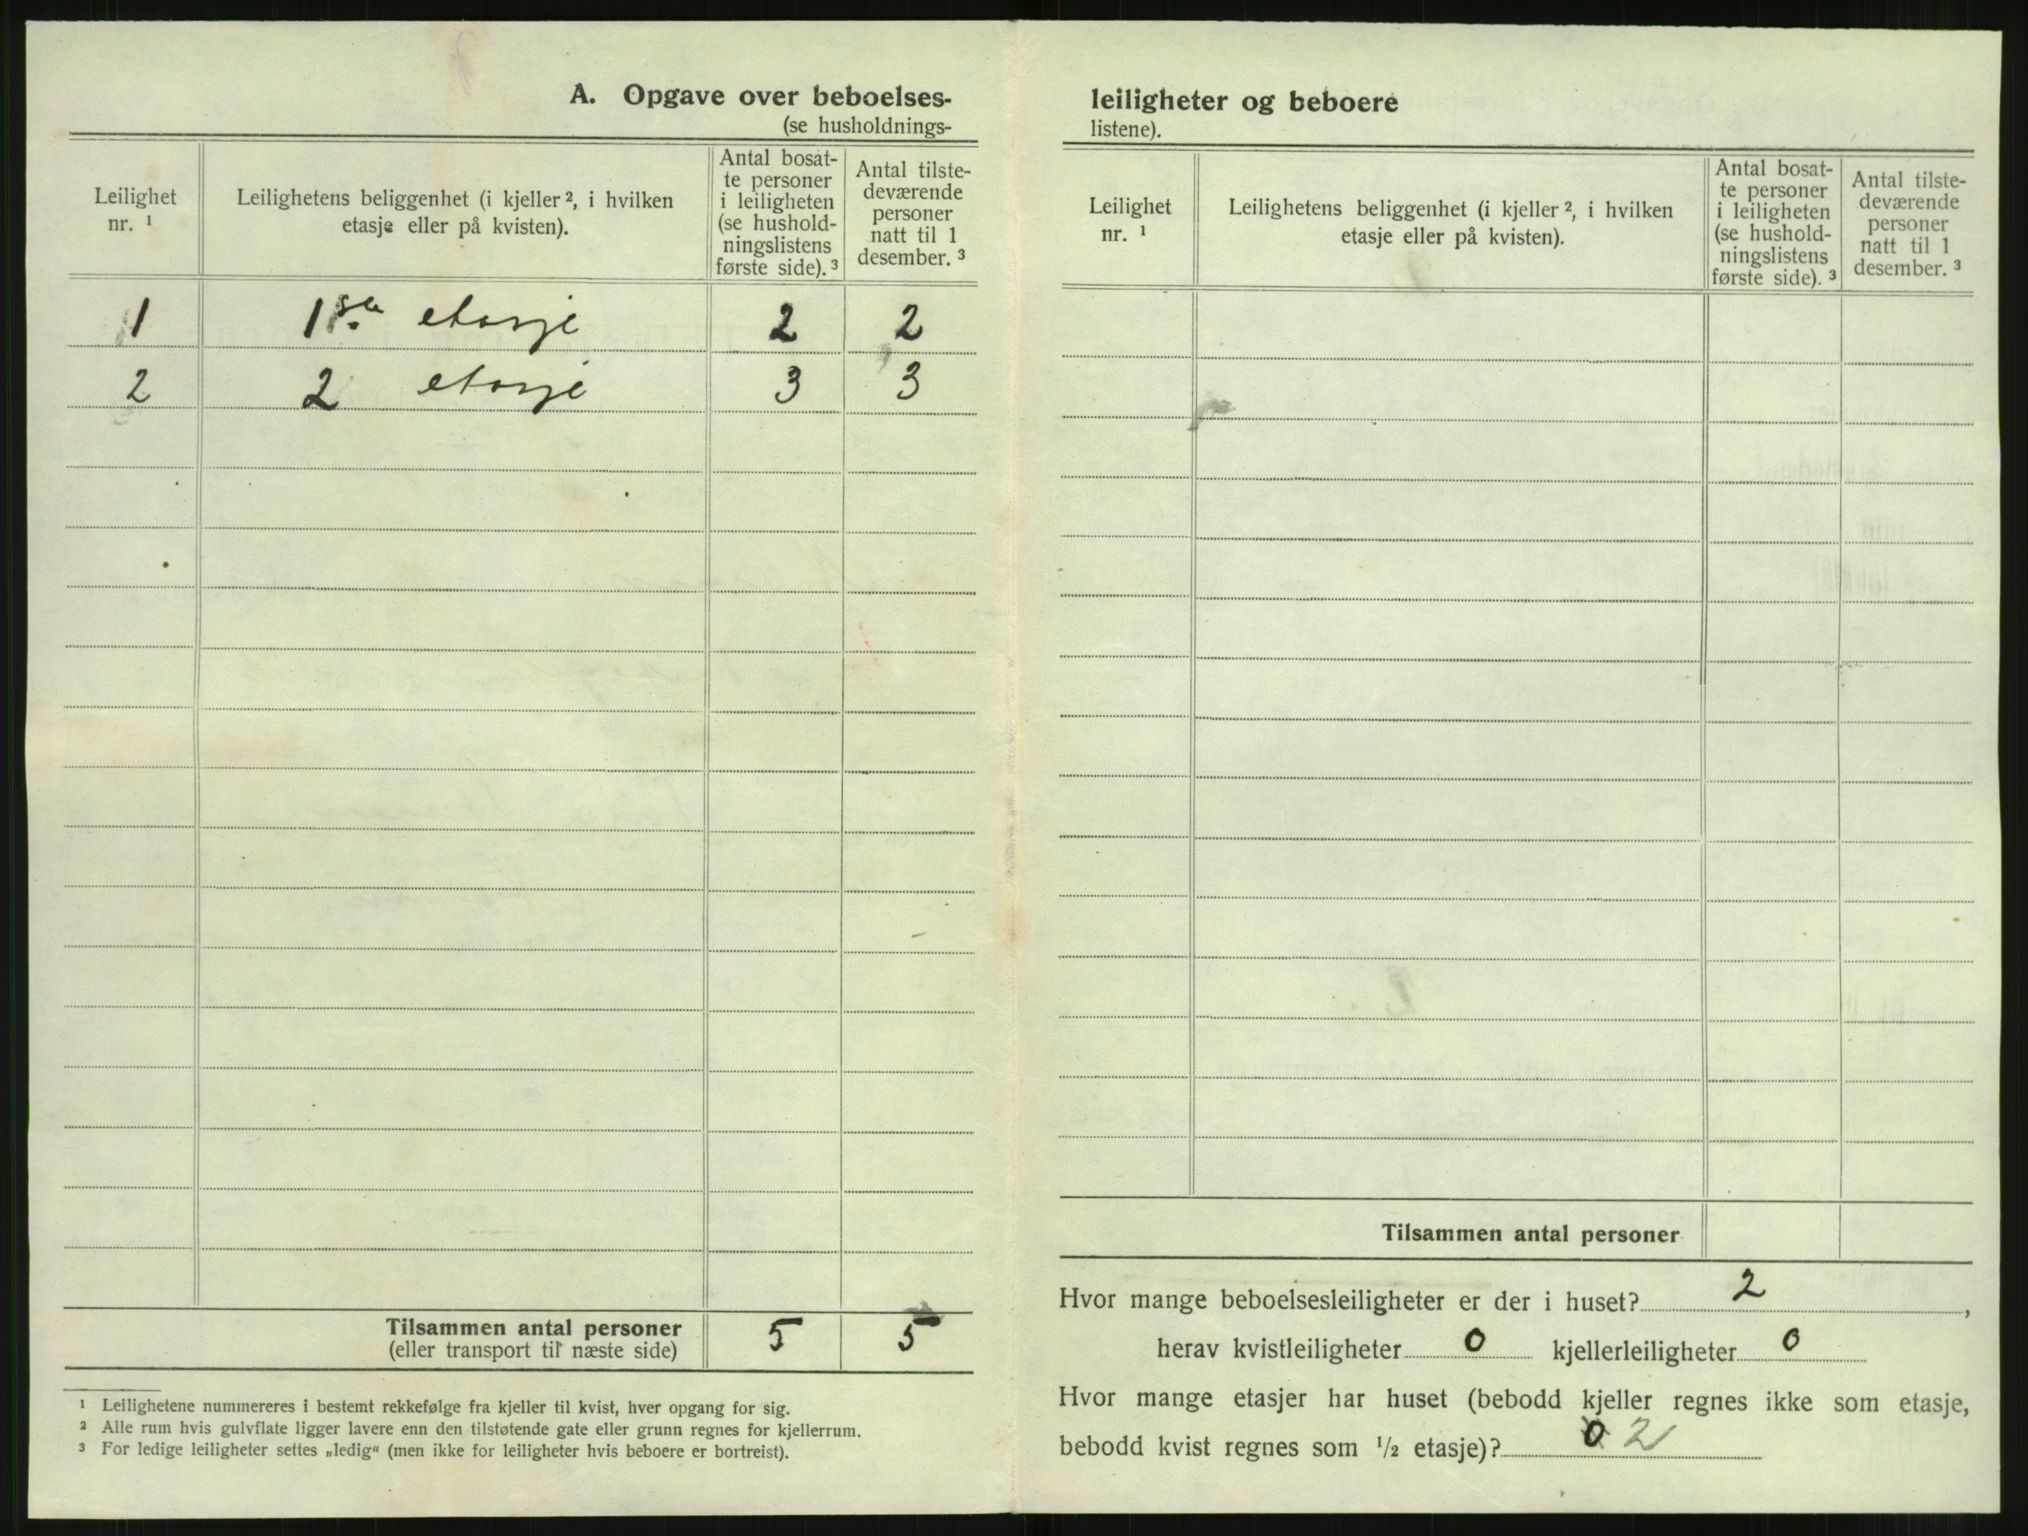 A. Opgave over beboelses-
(se husholdnings-
Leilighet
nr. ¹
Leilighetens beliggenhet (i kjeller ², i hvilken
etasje eller på kvisten).
Antal bosat-
te personer
i leiligheten
(se hushold-
ningslistens
første side). ³
Antal tilste-
deværende
personer
natt til 1
desember. ³
1 1ste etasje 2 2
2 2 etasje 3 3
Tilsammen antal personer 5 5
(eller transport til næste side)
¹ Leilighetene nummereres i bestemt rekkefølge fra kjeller til kvist, hver opgang for sig.
² Alle rum hvis gulvflate ligger lavere enn den tilstøtende gate eller grunn regnes for kjellerrum.
³ For ledige leiligheter settes „ledig“ (men ikke for leiligheter hvis beboere er bortreist).
leiligheter og beboere
listene).
Leilighet
nr. ¹
Leilighetens beliggenhet (i kjeller ², i hvilken
etasje eller på kvisten).
Antal bosat-
te personer
i leiligheten
(se hushold-
ningslistens
første side). ³
Antal tilste-
deværende
personer
natt til 1
desember. ³
Tilsammen antal personer
Hvor mange beboelsesleiligheter er der i huset? 2 ,
herav kvistleiligheter 0 kjellerleiligheter 0
Hvor mange etasjer har huset (bebodd kjeller regnes ikke som etasje,
bebodd kvist regnes som ½ etasje)? 0 2